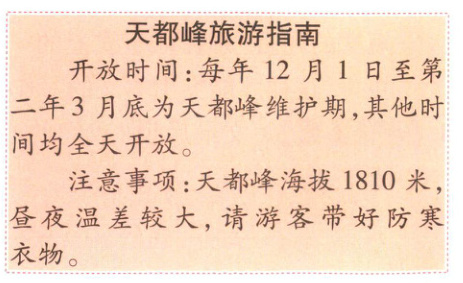 天都峰旅游指南
开放时间:每年 12 月 1 日至第
二年 3 月底为天都峰维护期,其他时
间均全天开放。
注意事项:天都峰海拔 1810 米,
昼夜温差较大,请游客带好防寒
衣物。